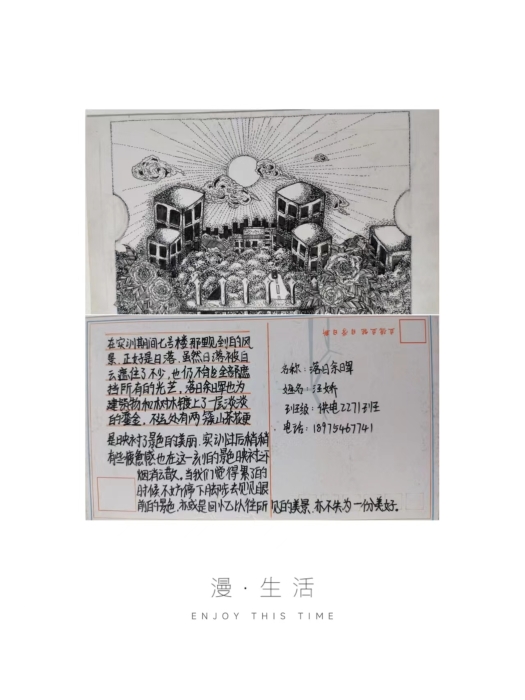 在实训期间七号楼那里见到的风
景,正好是日落,虽然日落被白
云遮住了不少,也仍不能全部遮
挡所有的光芒,落日余晖也为
建筑物和树木镀上了一层淡淡
的鎏金,不远处有两簇山茶花更
是映衬了景色的美丽,实训过后稍稍
有些疲惫感也在这一刻的景色映衬之下
烟消云散。当我们觉得累了的
时候不妨停下脚步去见见眼
前的景色,亦或是回忆以往所见的美景,亦不失为一份美好。
名称:落日余晖
姓名:汪娇
班级:供电2271班
电话:18975467741
漫·生活
ENJOY THIS TIME